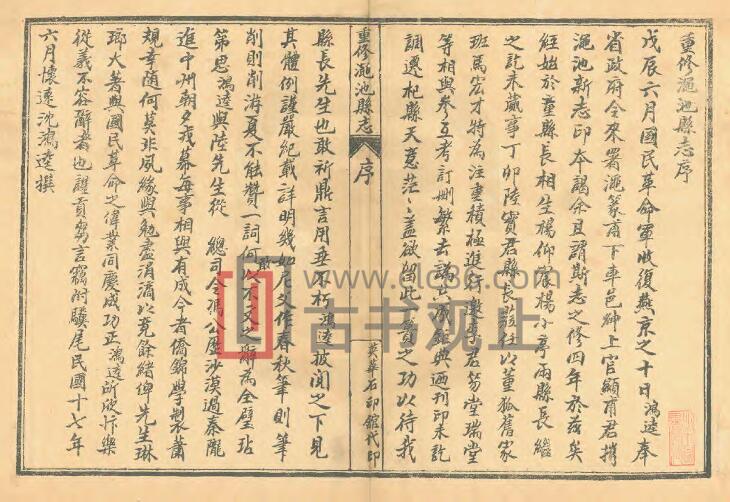 重修澠池縣志序
戊辰六月國民革命軍收復燕京之十日鴻逵奉
省政府令來署澠篆甫下車邑紳上官顯甫君攜
澠池新志印本謁余且謂斯志之修四年於茲矣
經始於童縣長相生楊仰君楊小亭兩縣長繼
之訖未蕆事丁卯陸寶君縣長蒞任以董狐舊家
班馬宏才特為注重積極進行邀李君芴堂瑞堂
等相與參互考訂刪繁去譌亦成鉅典迺刊印未訖
調遷杞縣天意茫茫蓋欲留此一簣之功以待我
重修澠池縣志
序
英華石印館代印
縣長先生也敢祈鼎言用垂不朽鴻逵披閱之下見
其體例謹嚴紀載詳明幾如又作春秋筆則筆
削則削游夏不能贊一詞何敢以不文之辭為全璧玷
第思鴻逵與陸先生從 總司令馮公歷沙漠過秦隴
進中州朝夕戎幕每事相與有成今者僑錦學製蕭
規幸隨何莫非夙緣與勉盡涓滴以竟餘緒俾先生琳
瑯大著與國民革命之偉業同慶成功正鴻逵所欣忭樂
從義不容辭者也謹貢芻言竊附驥尾民國十七年
六月懷遠沈鴻逵撰
www.dlc86.com
古书观止